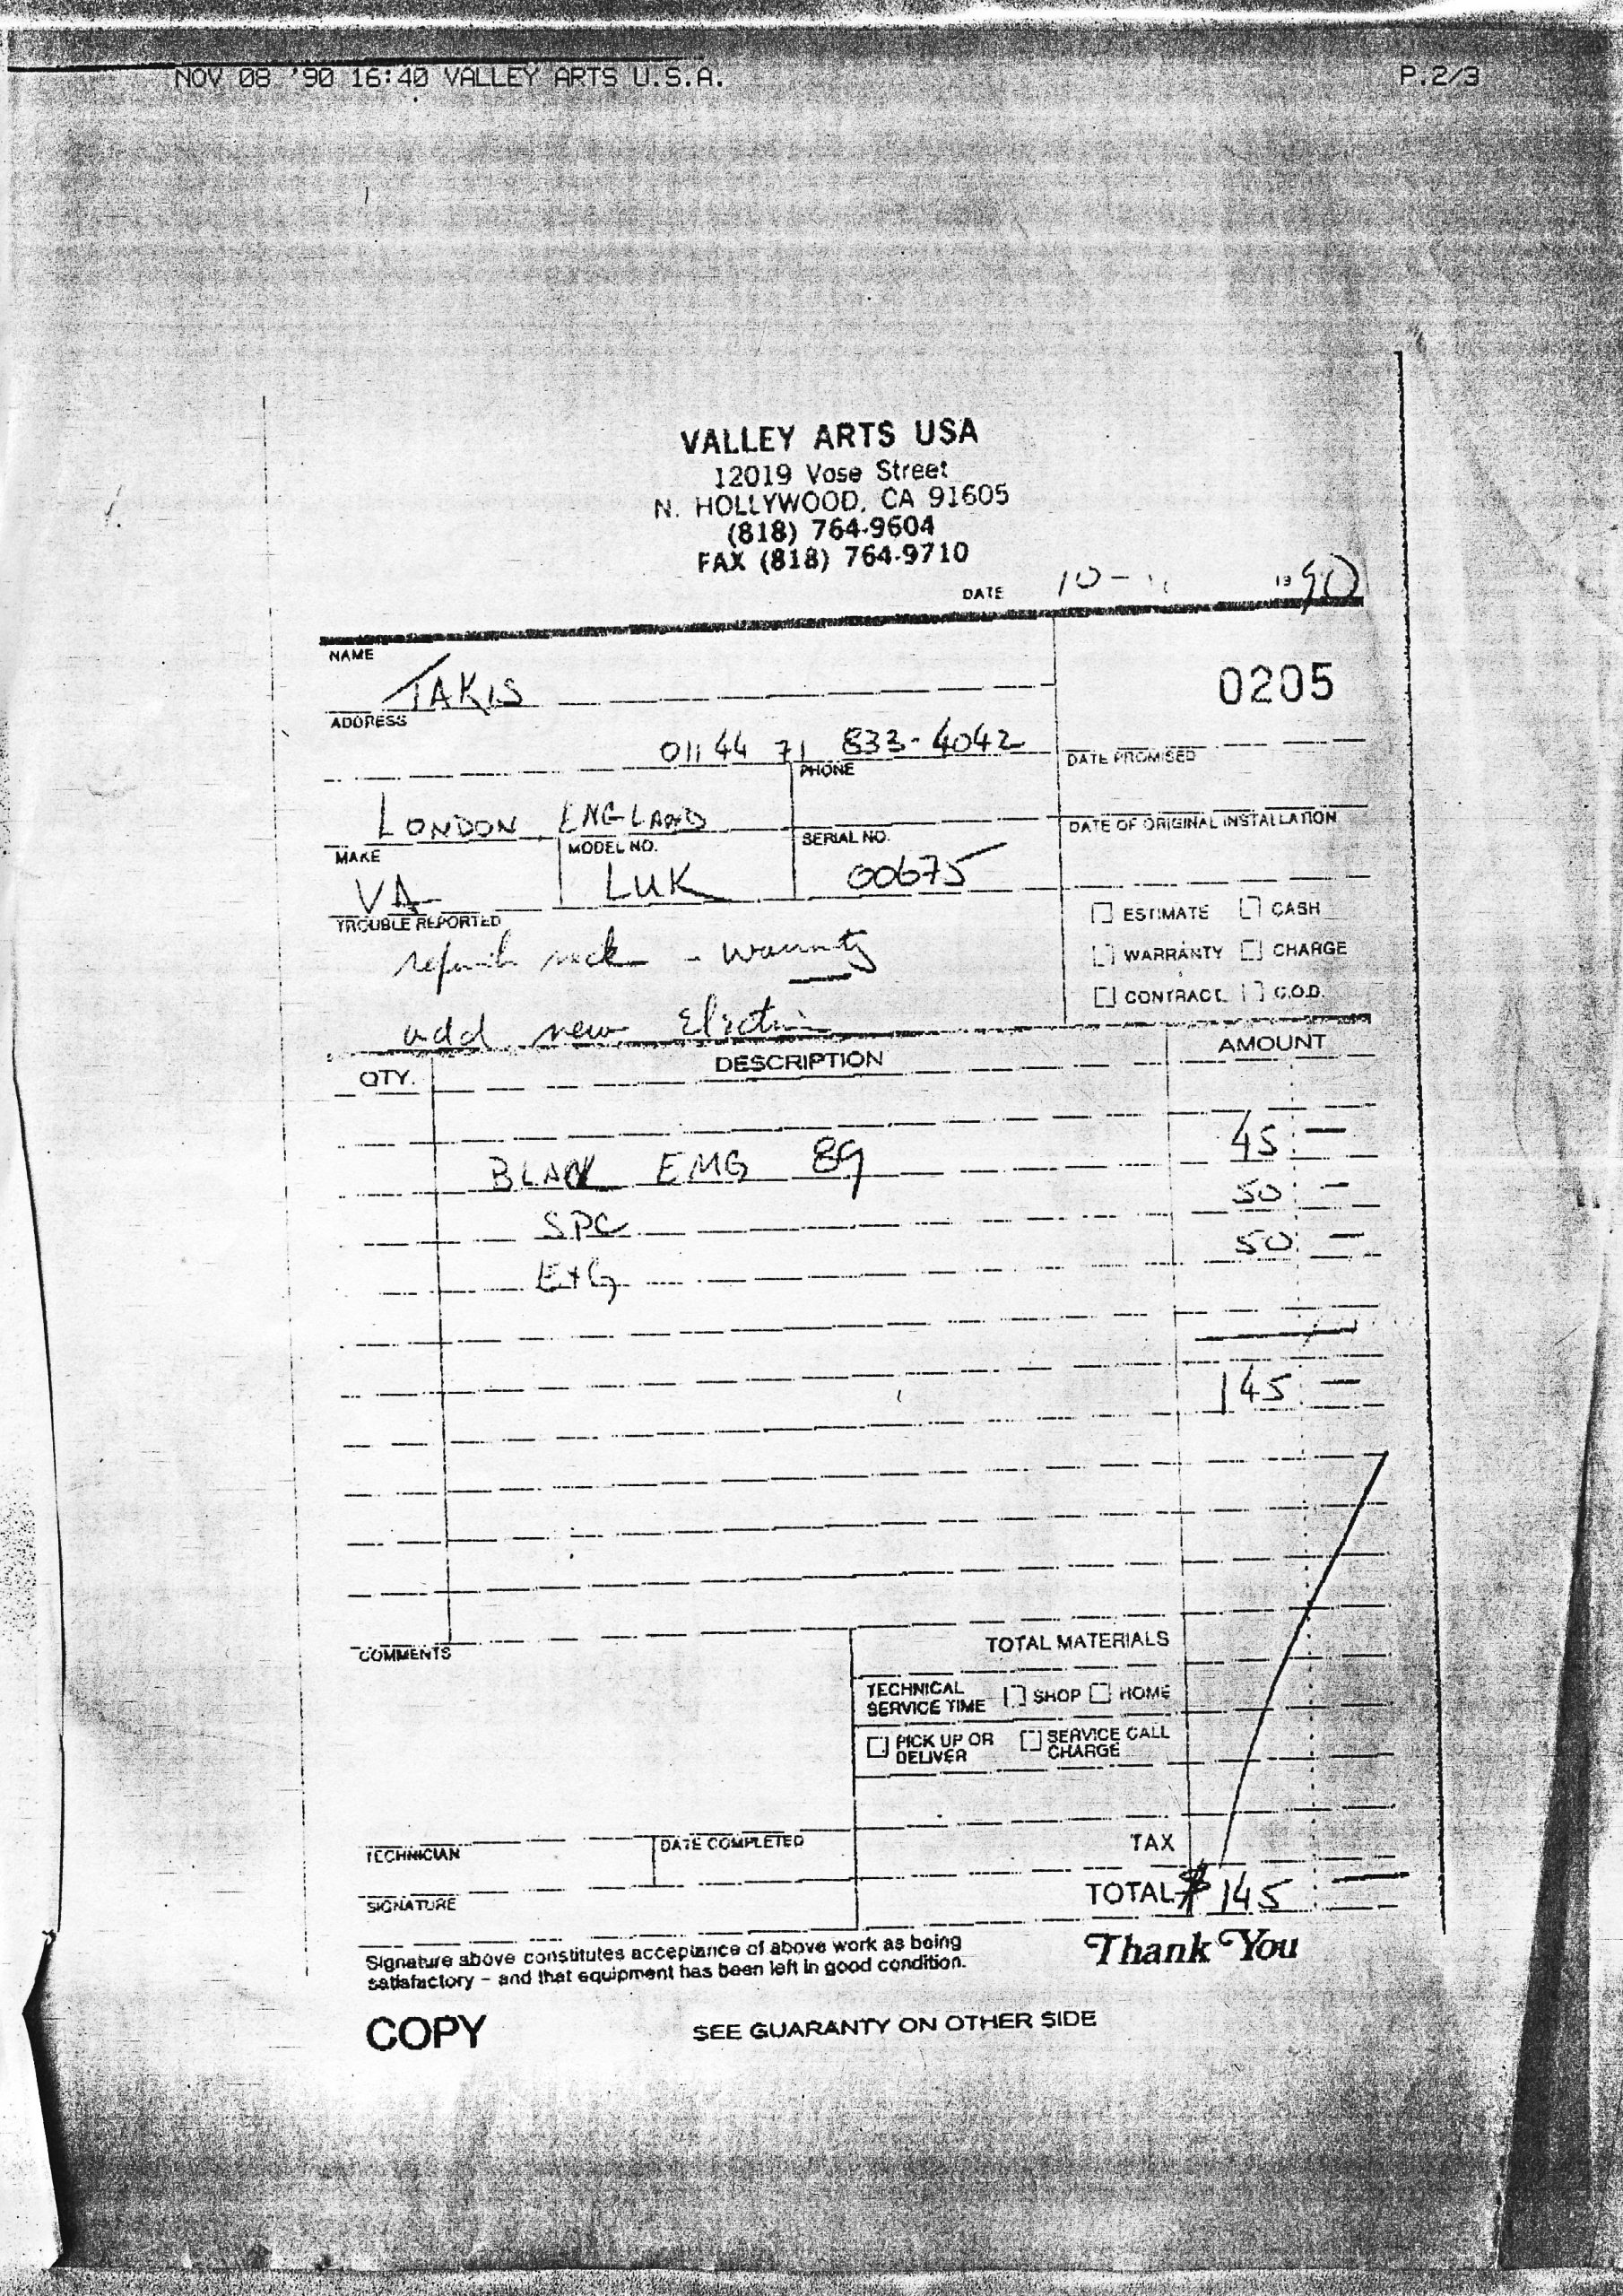 NOV 08 '90 16:40 VALLEY ARTS U.S.A. P.2/3
VALLEY ARTS USA
12019 Vose Street
N. HOLLYWOOD, CA 91605
(818) 764-9604
FAX (818) 764-9710
DATE 10- 19 90
NAME
TAKIS
0205
ADDRESS
011 44 71 833-4042
PHONE
DATE PROMISED
LONDON, ENGLAND
MAKE
MODEL NO.
SERIAL NO.
DATE OF ORIGINAL INSTALLATION
VA LUK 00675
TROUBLE REPORTED
ESTIMATE CASH
refinish neck - warranty
WARRANTY CHARGE
CONTRACT C.O.D.
add new
QTY. DESCRIPTION AMOUNT
BLACK EMG 89 45 —
SPC 50 —
EXG 50 —
145 —
COMMENTS
TOTAL MATERIALS
TECHNICAL SERVICE TIME SHOP HOME
PICK UP OR DELIVER SERVICE CALL CHARGE
TECHNICIAN
DATE COMPLETED
TAX
SIGNATURE
TOTAL $ 145 —
Signature above constitutes acceptance of above work as being
satisfactory – and that equipment has been left in good condition.
Thank You
COPY
SEE GUARANTY ON OTHER SIDE